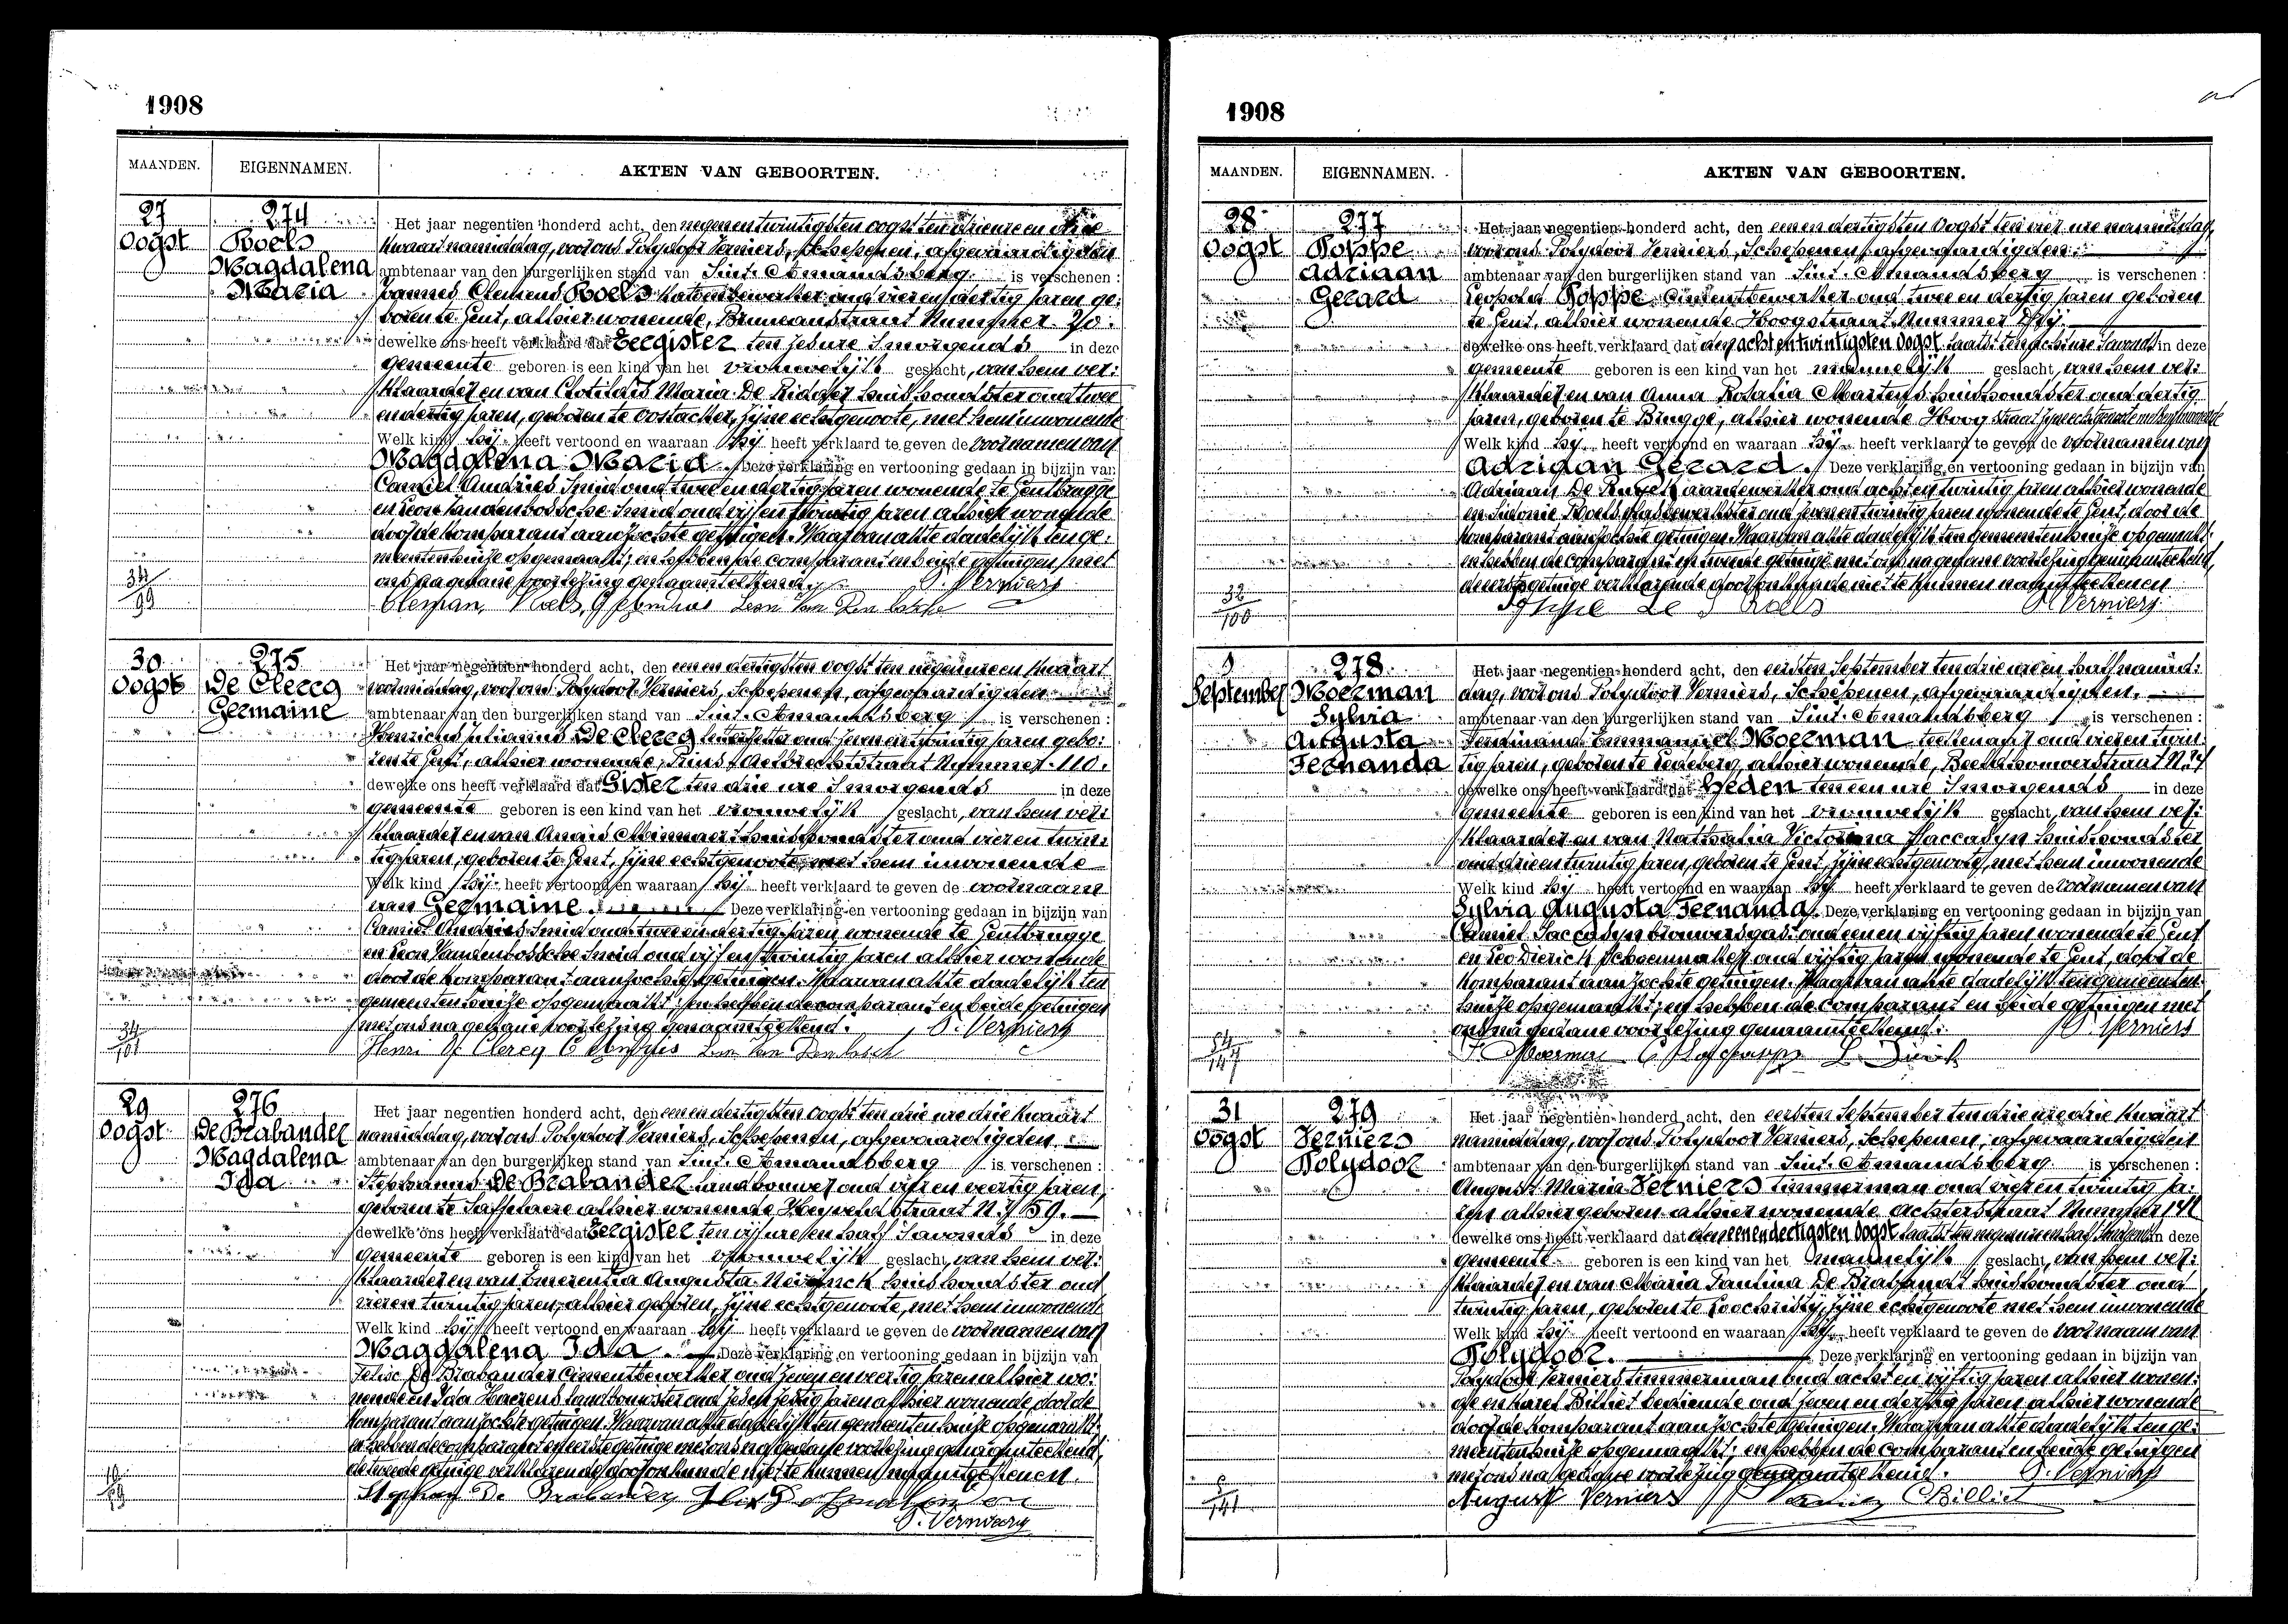 1908
MAANDEN. EIGENNAMEN. AKTEN VAN GEBOORTEN.
27 Oogst
274
Roels
Magdalena
Maria
Het jaar negentien honderd acht, den negenentwintigsten oogst ten drie ure en drie
kwaart namiddag, voor ons Polydoor Verniers, Schepenen, afgevaardigden
ambtenaar van den burgerlijken stand van Sint-Amandsberg is verschenen :
Joannes Clemens Roels katoenbewerker oud vieren dertig jaren ge-
boren te Gent, alhier wonende, Bruneaustraat Nummer 70.
dewelke ons heeft verklaard dat Eergister ten zes ure s'morgends in deze
gemeente geboren is een kind van het vrouwelijk geslacht, van hem ver-
klaarder en van Clotildis Maria De Ridder huishoudster oud twee
en dertig jaren, geboren te Oostacker, zijne echtgenoote, met hem inwonende
Welk kind hij heeft vertoond en waaraan hij heeft verklaard te geven de voornamen van
Magdalena Maria. Deze verklaring en vertooning gedaan in bijzijn van
Camiel Andries Smid oud twee en dertig jaren wonende te Gentbrugge
en Leon Vandenbossche Smid oud vijf en twintig jaren alhier wonende
door de komparant aanzochte getuigen. Waarvan akte dadelijk ten ge-
meentenhuize opgemaakt; en hebben de comparant en beide getuigen met
ons na gedane voorlezing genaamteekend. P. Verniers
34/99
Roels Leon Van Den Bossche
30 Oogst
275
De Clercq
Germaine
Het jaar negentien honderd acht, den eenen dertigsten oogst ten negen ure en kwaart
voormiddag, voor ons Polydoor Verniers, Schepenen, afgevaardigden
ambtenaar van den burgerlijken stand van Sint-Amandsberg is verschenen :
Henricus Julianus De Clercq letterzetter oud zeven en twintig jaren gebo-
ren te Gent, alhier wonende, Prins Aelbrechtstraat Nummer 110.
dewelke ons heeft verklaard dat Gister ten drie ure s'morgends in deze
gemeente geboren is een kind van het vrouwelijk geslacht, van hem ver-
klaarder en van Anais Minnaert huishoudster oud vieren twin-
tig jaren, geboren te Gent, zijne echtgenoote, met hem inwonende
Welk kind hij heeft vertoond en waaraan hij heeft verklaard te geven de voornaame
van Germaine. Deze verklaring en vertooning gedaan in bijzijn van
Camiel Andries Smid oud twee en dertig jaren wonende te Gentbrugge
en Leon Vandenbossche Smid oud vijf en twintig jaren alhier wonende
door de komparant aanzochte getuigen. Waarvan akte dadelijk ten
gemeentenhuize opgemaakt; en hebben de comparant en beide getuigen
met ons na gedane voorlezing genaamteekend. P. Verniers
34/101
Henri De Clercq
29 Oogst
276
De Brabander
Magdalena
Ida
Het jaar negentien honderd acht, den eenen dertigsten oogst ten drie ure drie kwaart
namiddag, voor ons Polydoor Verniers, Schepenen, afgevaardigden
ambtenaar van den burgerlijken stand van Sint-Amandsberg is verschenen :
Stephanus De Brabander landbouwer oud vijf en veertig jaren,
geboren te Saffelaere alhier wonende Heyveldstraat Nr 59.
dewelke ons heeft verklaard dat Eergister ten vijf ure en half s'avonds in deze
gemeente geboren is een kind van het vrouwelijk geslacht, van hem ver-
klaarder en van Emerentia Augusta Neirinck huishoudster oud
vieren twintig jaren, alhier geboren, zijne echtgenoote, met hem inwonende
Welk kind hij heeft vertoond en waaraan hij heeft verklaard te geven de voornamen van
Magdalena Ida. Deze verklaring en vertooning gedaan in bijzijn van
Felix De Brabander Cimentbewerker oud zeven en veertig jaren alhier wo-
nende en Ida Haerens landbouwster oud zes en zestig jaren alhier wonende door de
komparant aanzochte getuigen. Waarvan akte dadelijk ten gemeentenhuize opgemaakt;
en hebben de comparant en eerste getuige met ons na gedane voorlezing genaamteekend,
de tweede getuige verklarende door onkunde niet te kunnen naamteekenen.
De Brabander
P. Verniers
1908
MAANDEN. EIGENNAMEN. AKTEN VAN GEBOORTEN.
28 Oogst
277
Poppe
Adriaan
Gerard
Het jaar negentien honderd acht, den eenen dertigsten Oogst ten vier ure namiddag,
voor ons Polydoor Verniers, Schepenen, afgevaardigden
ambtenaar van den burgerlijken stand van Sint-Amandsberg is verschenen :
Leopold Poppe, Cimentbewerker oud twee en dertig jaren geboren
te Gent, alhier wonende Hoogstraat Nummer
dewelke ons heeft verklaard dat den acht en twintigsten Oogst laatst ten ure s'avonds in deze
gemeente geboren is een kind van het mannelijk geslacht, van hem ver-
klaarder en van Anna Rosalia Martens huishoudster oud dertig
jaren, geboren te Brugge, alhier wonende Hoogstraat zijne echtgenoote met hem inwonende
Welk kind hij heeft vertoond en waaraan hij heeft verklaard te geven de voornamen van
Adriaan Gerard. Deze verklaring en vertooning gedaan in bijzijn van
Adriaan De aardewerker oud acht en twintig jaren alhier wonende
en Sidonie Roels oud zeven en twintig jaren wonende te Gent, door de
komparant aanzochte getuigen. Waarvan akte dadelijk ten gemeentenhuize opgemaakt;
en hebben de comparant en tweede getuige met ons na gedane voorlezing genaamteekend,
de eerste getuige verklarende door onkunde niet te kunnen naamteekenen
32/100
Poppe Roels P. Verniers
September
278
Moerman
Sylvia
Augusta
Fernanda
Het jaar negentien honderd acht, den eersten September ten drie ure en half namid-
dag, voor ons Polydoor Verniers, Schepenen, afgevaardigden.
ambtenaar van den burgerlijken stand van Sint-Amandsberg is verschenen :
Ferdinand Emmanuel Moerman teekenaar oud vieren twin-
tig jaren, geboren te Ledeberg, alhier wonende, Beeldhouwerstraat Nr
dewelke ons heeft verklaard dat Heden ten een ure s'morgends in deze
gemeente geboren is een kind van het vrouwelijk geslacht, van hem ver-
klaarder en van Nathalia Victorina Saccasyn huishoudster
oud drieen twintig jaren, geboren te Gent, zijne echtgenoote, met hem inwonende
Welk kind hij heeft vertoond en waaraan hij heeft verklaard te geven de voornamen van
Sylvia Augusta Fernanda. Deze verklaring en vertooning gedaan in bijzijn van
Camiel Saccasyn brouwersgast oud eenen vijftig jaren wonende te Gent
en Leo Dierick schoenmaker oud vijftig jaren wonende te Gent, door de
komparant aanzochte getuigen. Waarvan akte dadelijk ten gemeenten-
huize opgemaakt; en hebben de comparant en beide getuigen met
ons na gedane voorlezing genaamteekend. P. Verniers
F. Moerman L. Dierick
31 Oogst
279
Verniers
Polydoor
Het jaar negentien honderd acht, den eersten September ten drie ure drie kwaart
namiddag, voor ons Polydoor Verniers, Schepenen, afgevaardigden
ambtenaar van den burgerlijken stand van Sint-Amandsberg is verschenen :
August Maria Verniers timmerman oud vieren twintig ja-
ren alhier geboren alhier wonende Achterstraat Nummer 141
dewelke ons heeft verklaard dat den eenendertigsten Oogst laatst ten negen ure en half s'morgends in deze
gemeente geboren is een kind van het mannelijk geslacht, van hem ver-
klaarder en van Maria Paulina De Brabandt huishoudster oud
twintig jaren, geboren te Loochristy, zijne echtgenoote met hem inwonende
Welk kind hij heeft vertoond en waaraan hij heeft verklaard te geven de voornaam van
Polydoor. Deze verklaring en vertooning gedaan in bijzijn van
Polydoor Verniers timmerman oud acht en vijftig jaren alhier wonen-
de en Karel Billiet bediende oud zeven en dertig jaren alhier wonende
door de komparant aanzochte getuigen. Waarvan akte dadelijk ten ge-
meentenhuize opgemaakt; en hebben de comparant en beide getuigen
met ons na gedane voorlezing genaamteekend. P. Verniers
August Verniers C Billiet